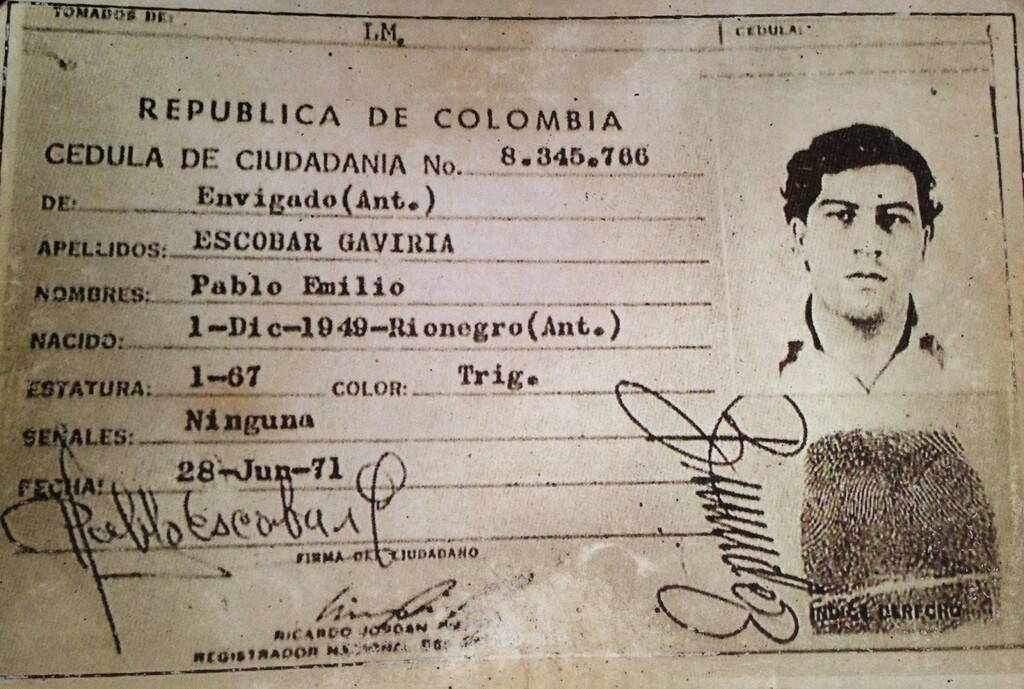 TOMADOS DE:
I.M.
CEDULA:
REPUBLICA DE COLOMBIA
CEDULA DE CIUDADANIA No. 8.345.766
DE: Envigado(Ant.)
APELLIDOS: ESCOBAR GAVIRIA
NOMBRES: Pablo Emilio
NACIDO: 1-Dic-1949-Rionegro(Ant.)
ESTATURA: 1-67 COLOR: Trig.
SEÑALES: Ninguna
FECHA: 28-Jun-71
Pablo Escobar G
FIRMA DEL CIUDADANO
INDICE DERECHO
RICARDO JORDAN
REGISTRADOR NACIONAL